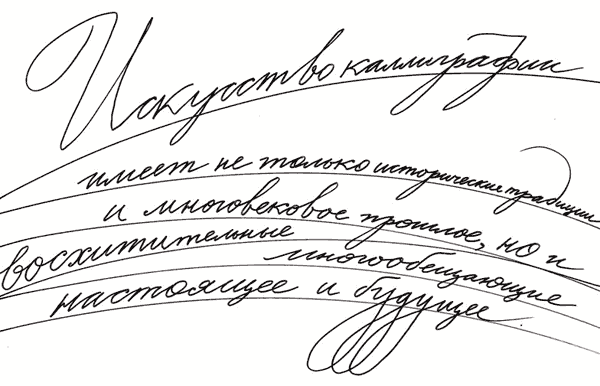 Искусство каллиграфии
имеет не только исторические традиции
и многовековое прошлое, но и
восхитительные многообещающие
настоящее и будущее